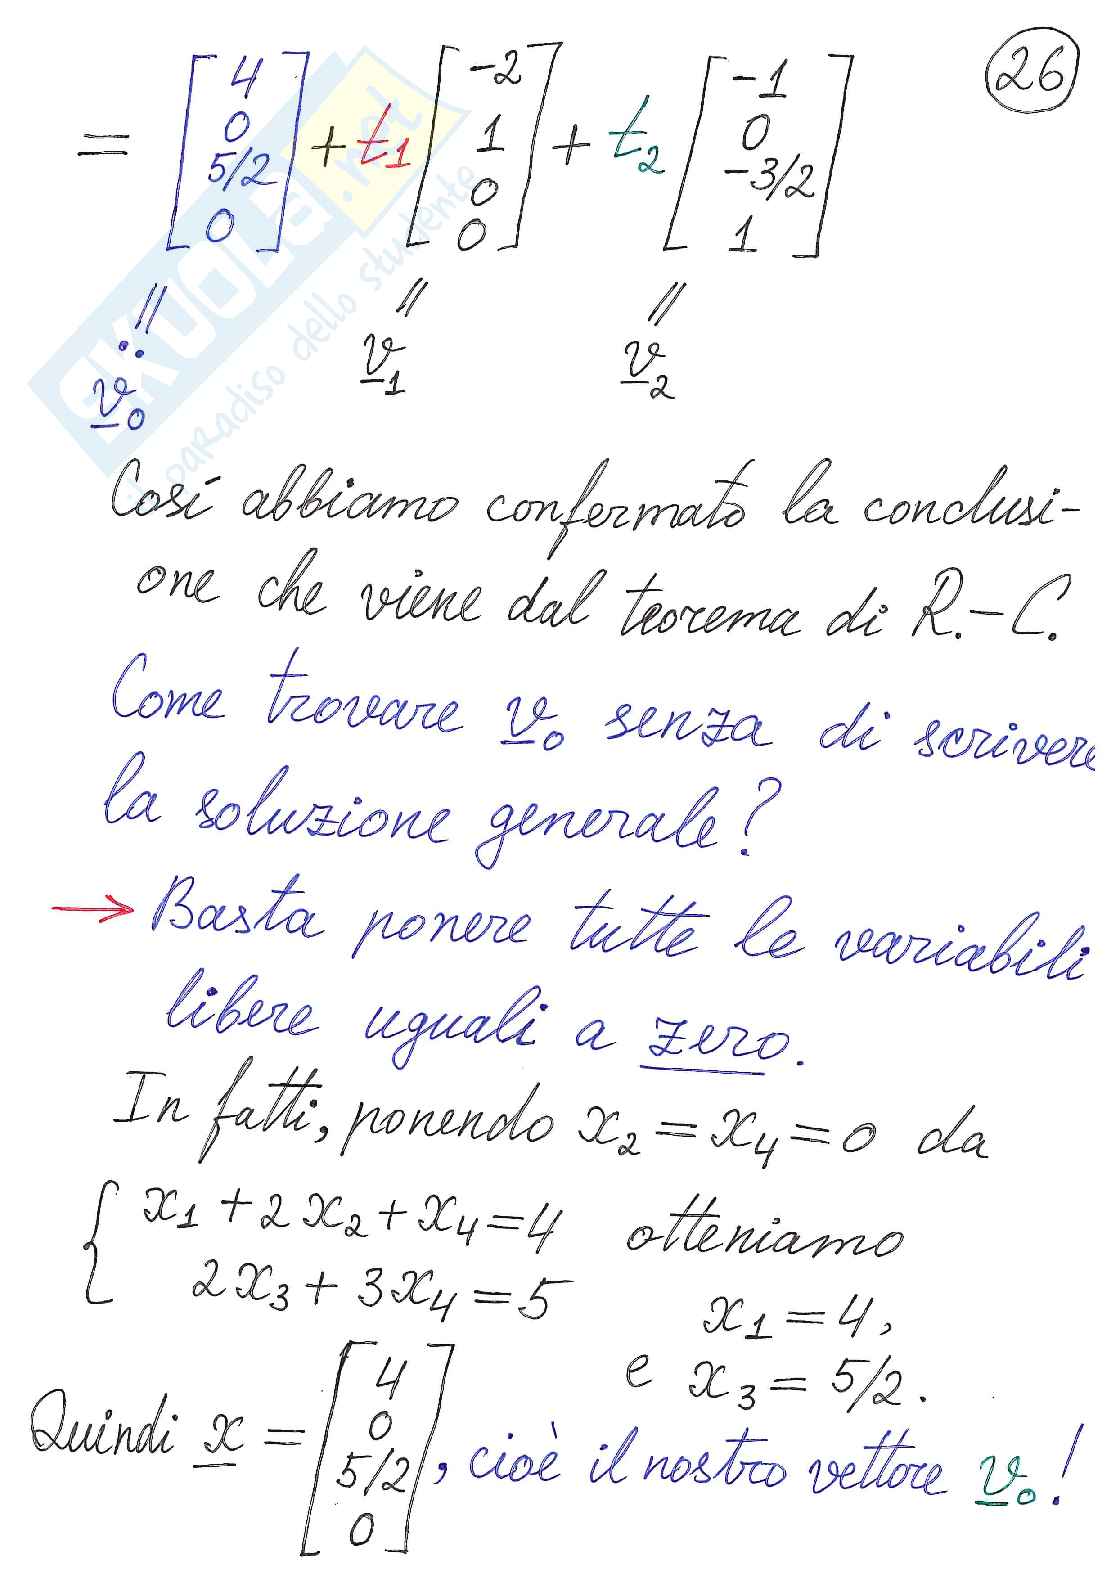 26
= [4 0 5/2 0] + t₁ [-2 1 0 0] + t₂ [-1 0 -3/2 1]
SKUOLA.net
paradiso dello studente
v₀ v₁ v₂
Cosí abbiamo confermato la conclusi-
one che viene dal teorema di R.-C.
Come trovare v₀ senza di scrivere
la soluzione generale?
→ Basta ponere tutte le variabili
libere uguali a zero.
In fatti, ponendo x₂ = x₄ = 0 da
{ x₁ + 2x₂ + x₄ = 4 otteniamo
2x₃ + 3x₄ = 5 x₁ = 4,
e x₃ = 5/2.
Quindi x = [4 0 5/2 0], cioè il nostro vettore v₀!